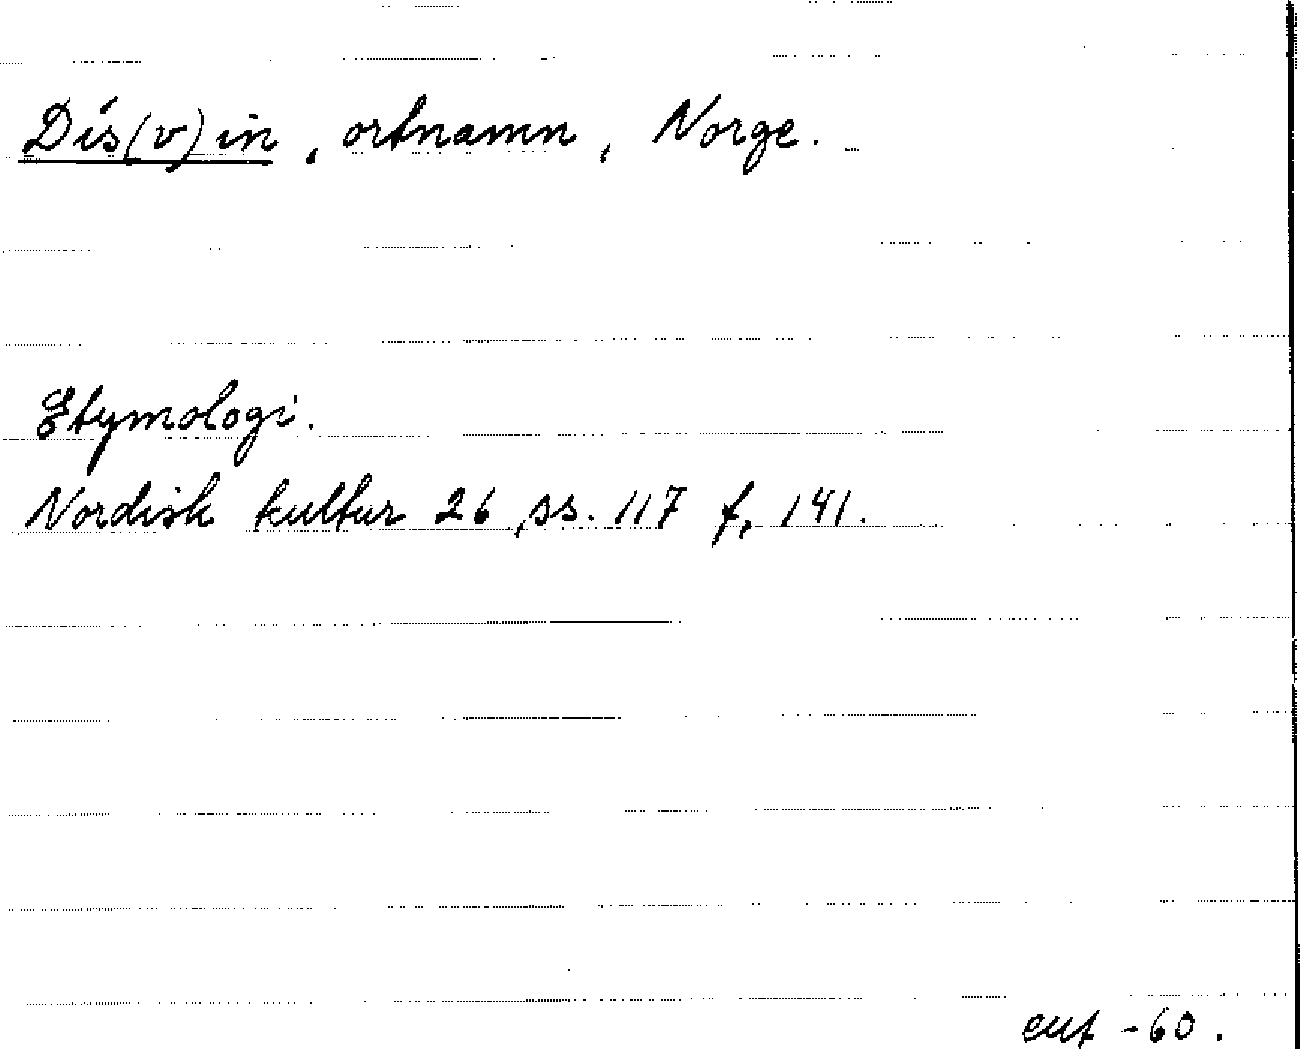 Dís(v)in, ortnamn, Norge.
Etymologi.
Nordisk kultur 26, ss. 117 f, 141.
-60.